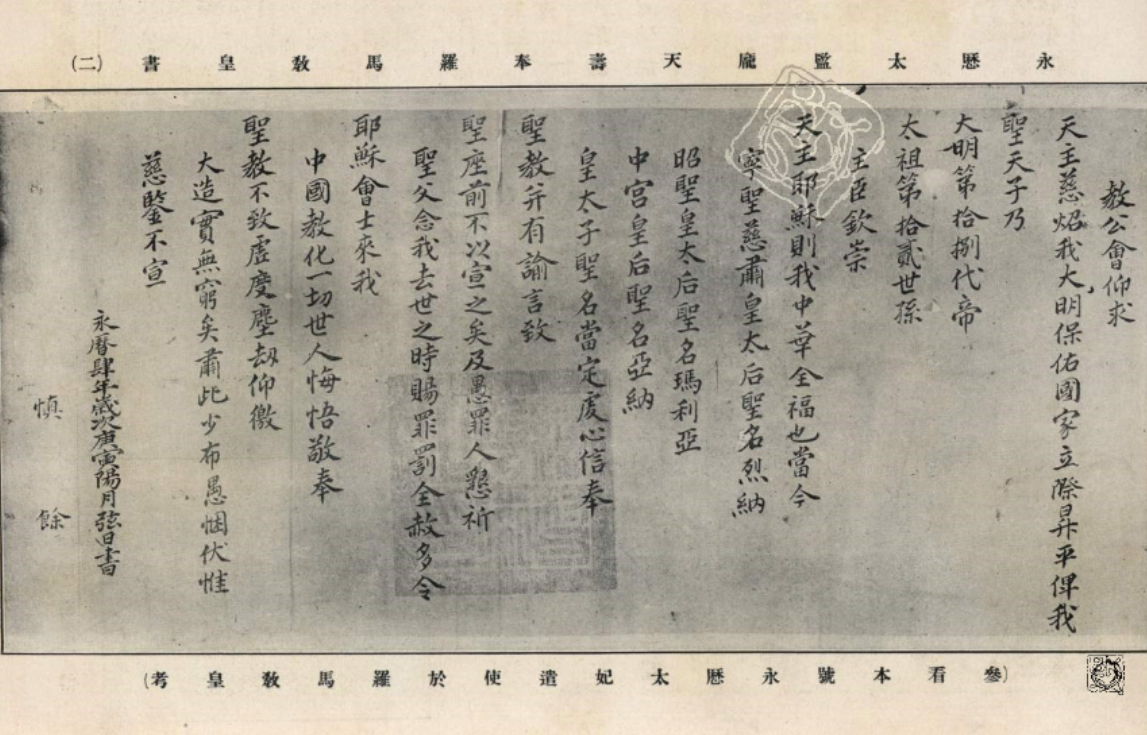 永曆太監龐天壽奉羅馬教皇書(二)
教公會仰求
天主慈炤我大明保佑國家立際昇平俾我
聖天子乃
大明第拾捌代帝
太祖第拾貳世孫
主臣欽崇
天主耶穌則我中華全福也當今
寧聖慈肅皇太后聖名烈納
昭聖皇太后聖名瑪利亞
中宮皇后聖名亞納
皇太子聖名當定虔心信奉
聖教并有諭言致
聖座前不以宣之矣及愚罪人懇祈
聖父念我去世之時賜罪罰全赦多令
耶穌會士來我
中國教化一切世人悔悟敬奉
聖教不致虛度塵劫仰徼
大造實無窮矣肅此少布愚悃伏惟
慈鑒不宣
永曆肆年歲次庚寅陽月弦日書
慎餘
(參看本號永曆太妃遣使於羅馬教皇考)